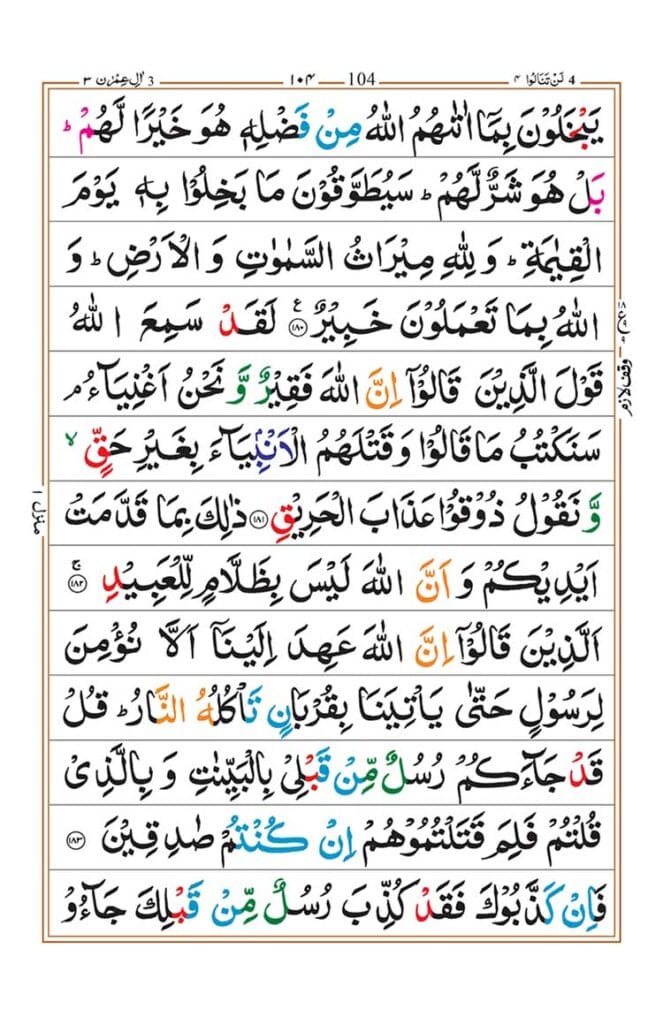 4 لَنْ تَنَالُوا ٤ 104 ١٠٤ 3 اٰلِ عِمْرٰن ٣
يَبْخَلُوْنَ بِمَاۤ اٰتٰىهُمُ اللّٰهُ مِنْ فَضْلِهٖ هُوَ خَيْرًا لَّهُمْ ؕ
بَلْ هُوَ شَرٌّ لَّهُمْ ؕ سَيُطَوَّقُوْنَ مَا بَخِلُوْا بِهٖ يَوْمَ
الْقِيٰمَةِ ؕ وَ لِلّٰهِ مِيْرَاثُ السَّمٰوٰتِ وَ الْاَرْضِ ؕ وَ
اللّٰهُ بِمَا تَعْمَلُوْنَ خَبِيْرٌ ۧ ﴿١٨٠﴾ لَقَدْ سَمِعَ اللّٰهُ
قَوْلَ الَّذِيْنَ قَالُوْۤا اِنَّ اللّٰهَ فَقِيْرٌ وَّ نَحْنُ اَغْنِيَآءُ ۘ
وقف لازم
سَنَكْتُبُ مَا قَالُوْا وَ قَتْلَهُمُ الْاَنْۢبِيَآءَ بِغَيْرِ حَقٍّ ۙ
وَّ نَقُوْلُ ذُوْقُوْا عَذَابَ الْحَرِيْقِ ﴿١٨١﴾ ذٰلِكَ بِمَا قَدَّمَتْ
منزل ١
اَيْدِيْكُمْ وَ اَنَّ اللّٰهَ لَيْسَ بِظَلَّامٍ لِّلْعَبِيْدِ ۚ ﴿١٨٢﴾
اَلَّذِيْنَ قَالُوْۤا اِنَّ اللّٰهَ عَهِدَ اِلَيْنَاۤ اَلَّا نُؤْمِنَ
لِرَسُوْلٍ حَتّٰى يَاْتِيَنَا بِقُرْبَانٍ تَاْكُلُهُ النَّارُ ؕ قُلْ
قَدْ جَآءَكُمْ رُسُلٌ مِّنْ قَبْلِيْ بِالْبَيِّنٰتِ وَ بِالَّذِيْ
قُلْتُمْ فَلِمَ قَتَلْتُمُوْهُمْ اِنْ كُنْتُمْ صٰدِقِيْنَ ﴿١٨٣﴾
فَاِنْ كَذَّبُوْكَ فَقَدْ كُذِّبَ رُسُلٌ مِّنْ قَبْلِكَ جَآءُوْ